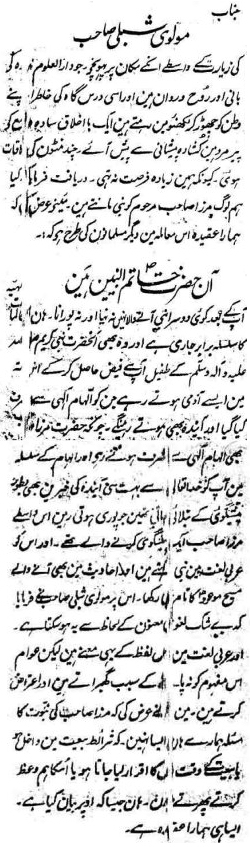 جناب
مولوی شبلی صاحب
کی زیارت کے واسطے انکے مکان پر پہونچے جو دارالعلوم ندوہ کے
بانی اور روح رواں ہیں اور اسی درس گاہ کی خاطر اپنے
وطن کو چھوڑ کر لکھنؤ میں رہتے ہیں ایک با اخلاق سادہ وضع کے
پیر مرد ہیں کشادہ پیشانی سے پیش آئے چند منٹوں کی ملاقات
ہوئی کیونکہ ہمیں زیادہ فرصت نہ تھی۔ دریافت فرمایا کیا
ہم لوگ مرزا صاحب مرحوم کو نبی مانتے ہیں۔ مینے عرض کیا
ہمارا عقیدہ اس معاملہ میں دیگر مسلمانوں کی طرح ہے کہ
آں حضرت صلعم خاتم النبیین ہیں
آپکے بعد کوئی دوسرا نبی آنے والا نہیں نہ نیا اور نہ پرانا۔ ہاں
کا سلسلہ برابر جاری ہے اور وہ بھی آنحضرت نبی کریم صلی اللہ
علیہ و آلہ وسلم کے طفیل آپسے فیض حاصل کر کے اس
میں ایسے آدمی ہوتے رہے ہیں جن کو الہام الٰہی سے
کیا گیا اور آیندہ بھی ہوتے رہینگے۔ چونکہ حضرت مرزا صاحب
بھی الہام الٰہی سے مشرف ہوتے رہے اور الہام کے سلسلہ
میں آپ کو خدا تعالیٰ نے بہت سی آیندہ کی خبریں بھی بطور
پیشگوئی کے بتلائی تھیں جو پوری ہوتی رہیں اس واسطے
مرزا صاحب ایک پیشگوئی کرنے والے تھے۔ اور اس کو
عربی لغت میں نبی کہتے ہیں اور احادیث میں بھی آنے والے
مسیح موعود کا نام نبی رکھا۔ اس پر مولوی شبلی صاحب نے فرمایا
کہ بے شک لغوی معنوں کے لحاظ سے یہ ہو سکتا ہے۔
اور عربی لغت میں اس لفظ کے یہی معنے ہیں لیکن عوام
اس مفہوم کو نہ پانے کے سبب گھبراتے ہیں اور اعتراض
کرتے ہیں۔ میں نے عرض کی کہ مرزا صاحب کی نبوت کا
مسئلہ ہمارے ہاں ایسا نہیں۔ کہ شرائط بیعت میں داخل ہو
یا بیعت کے وقت اس کا اقرار لیا جاتا ہو یا اسکا ہم وعظ
کرتے پھرتے ہوں۔ ہاں جیسا کہ اوپر بیان کیا ہے۔
ایسا ہی ہمارا عقیدہ ہے